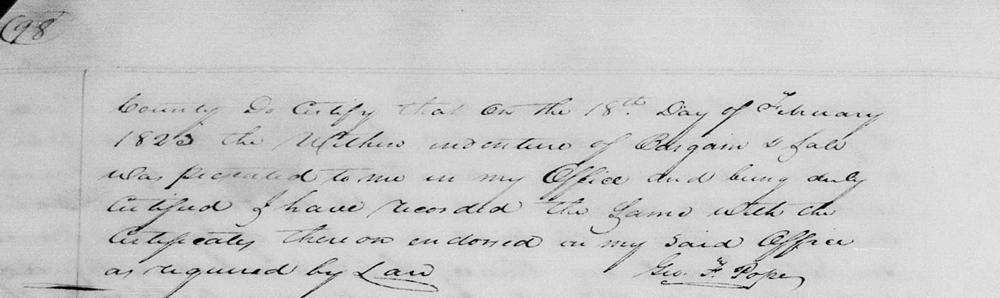 (98
County Do Certify that On the 18th. Day of February
1823 the Within indenture of Bargain & Sale
was presented to me in my Office and being duly
Certified I have recorded the Same with the
Certificates thereon endorsed in my Said Office
as required by Law Geo. F. Pope